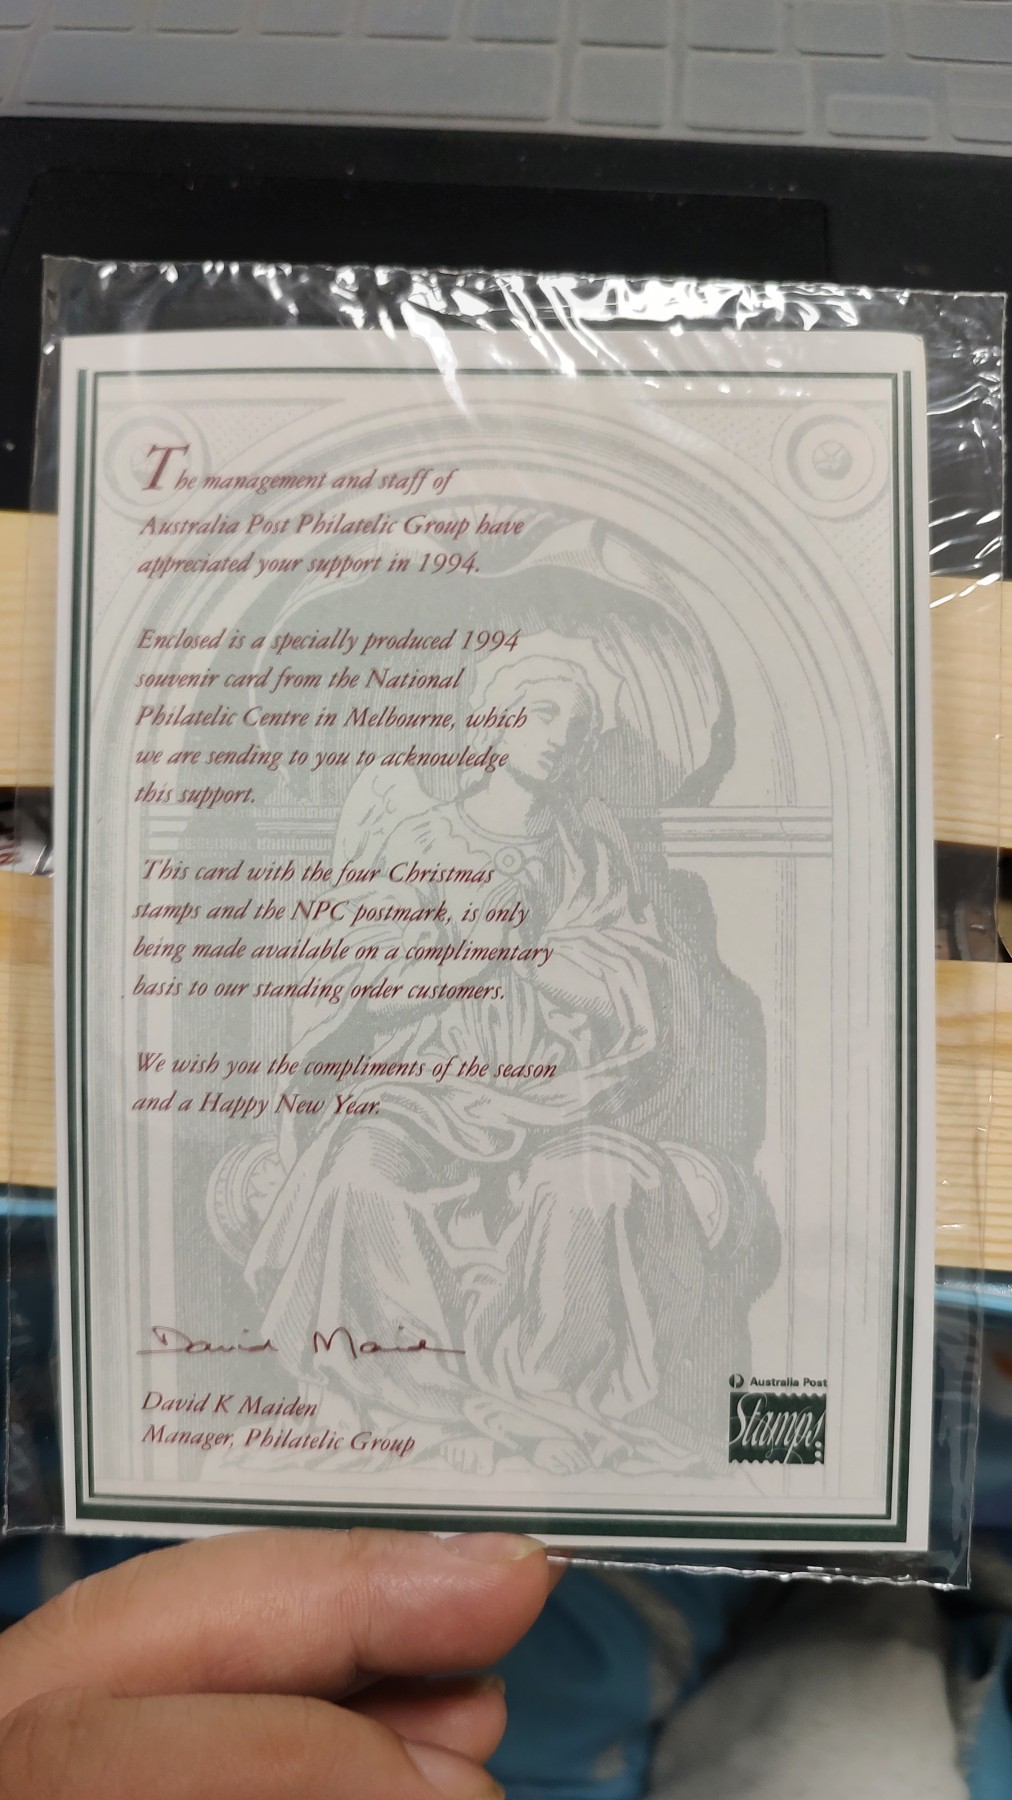 The management and staff of
Australia Post Philatelic Group have
appreciated your support in 1994.
Enclosed is a specially produced 1994
souvenir card from the National
Philatelic Centre in Melbourne, which
we are sending to you to acknowledge
this support.
This card with the four Christmas
stamps and the NPC postmark, is only
being made available on a complimentary
basis to our standing order customers.
We wish you the compliments of the season
and a Happy New Year.
David Maiden
David K Maiden
Manager, Philatelic Group
Australia Post
Stamps